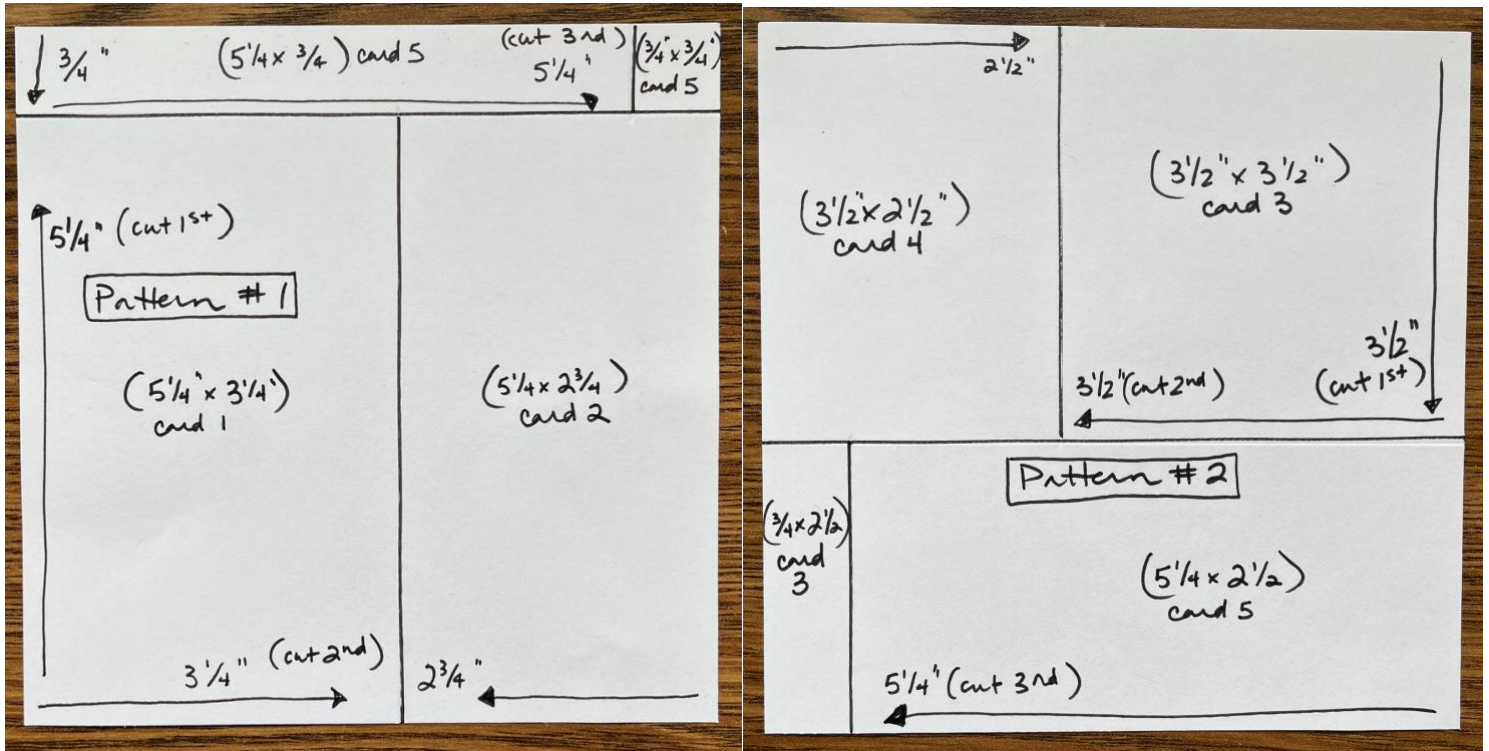 3/4"
(5 1/4 x 3/4) card 5
(cut 3rd)
5 1/4"
(3/4" x 3/4")
card 5
5 1/4" (cut 1st)
Pattern # 1
(5 1/4" x 3 1/4")
card 1
(5 1/4 x 2 3/4)
card 2
3 1/4" (cut 2nd)
2 3/4"
2 1/2"
(3 1/2" x 2 1/2")
card 4
(3 1/2" x 3 1/2")
card 3
3 1/2"
(cut 1st)
3 1/2" (cut 2nd)
Pattern # 2
(3/4 x 2 1/2)
card
3
(5 1/4 x 2 1/2)
card 5
5 1/4" (cut 3rd)